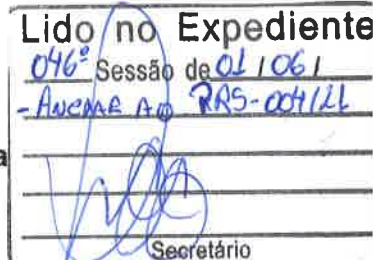 Lido no Expediente
046ª Sessão de 01/06/
- Anexar ao
a
Secretário